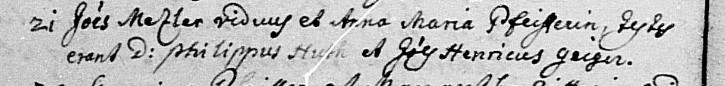 21 Jo͠es Mezler viduus et Anna Maria Pfeifferin, testes
erant D: Philippus Huth et Jo͠es Henricus geiger.